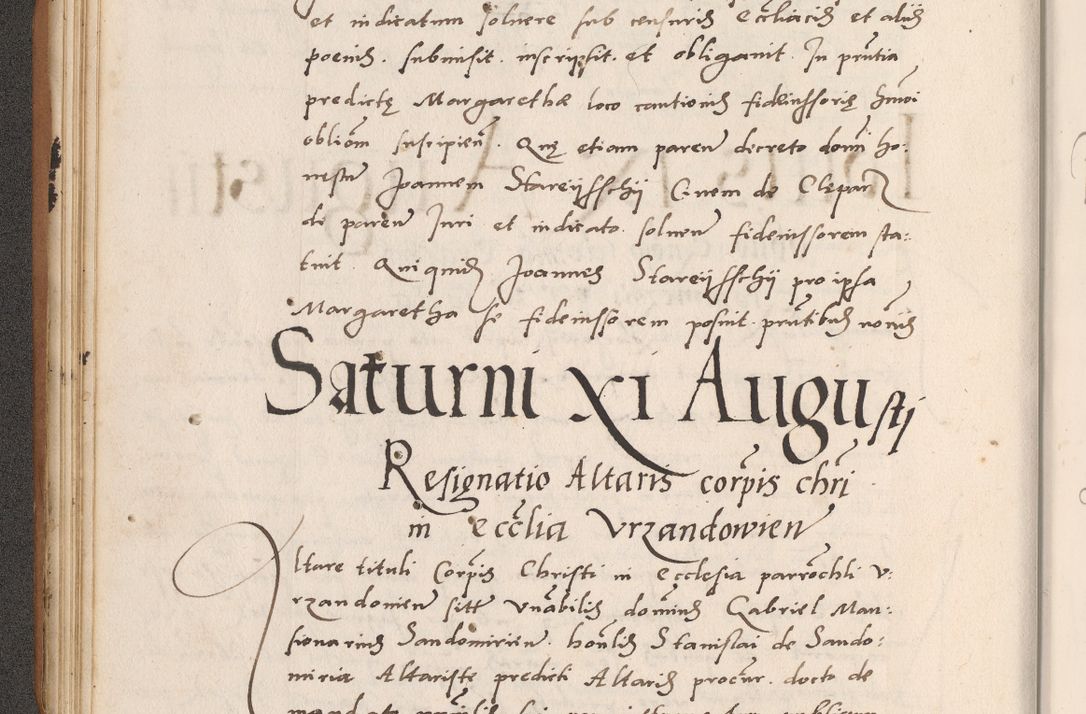 et indicatum solvere sub censuris eccl̃iacis et aliis
poenis. submisit. inscripsit. et obligavit. In prñtia
predictę Margarethæ loco cautionis fideiussorię hmõi
obliõm suscipieñ. Quę etiam pareñ decreto domi ho:
nestũ Joannem Stareijsschij Civem de Clepar
di pareñ Juri et indicato. solveñ fideiussorem sta:
tuit. Qui quidẽ Joannes Stareijsschij pro ipsa
Margaretha se fideiussorem posuit. prñtibus nõriis
Saturni XI Augusti
Resignatio Altaris corp̃is chr̃i
in eccl̃ia Vrzandowieñ
Altare tituli Corp̃is Christi in Ecclesia parrochli V:
rzandovieñ sitũ Vñabilis dominus Gabriel Man:
sionarius Sandomirieñ. hoñlis Stanislai de Sando:
miria Altariste predicti Altaris procũr. docto de